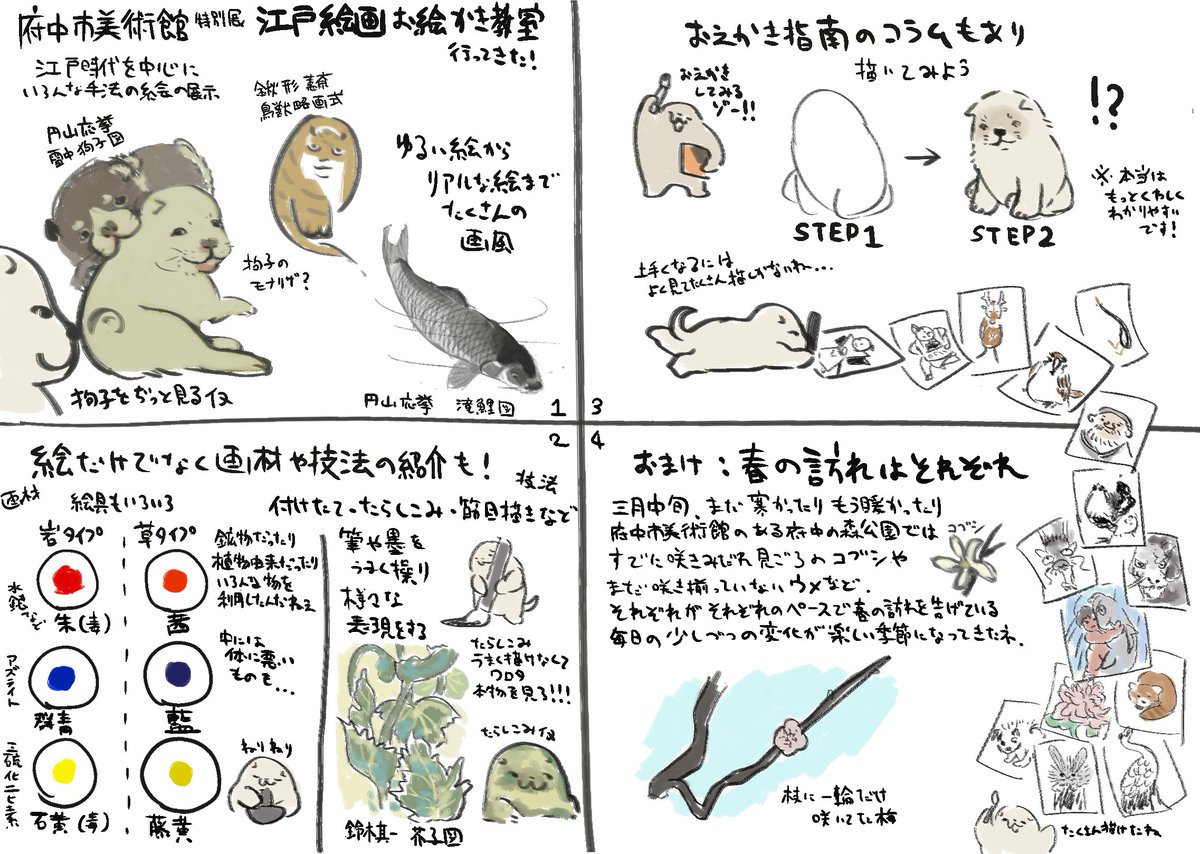 府中市美術館 特別展 江戸絵画お絵かき教室
行ってきた!
江戸時代を中心に
いろんな手法の絵の展示
円山応挙
雪中狗子図
鍬形蕙斎
鳥獣略画式
ゆるい絵から
リアルな絵まで
たくさんの
画風
狗子の
モナリザ?
狗子をぢっと見るイヌ
円山応挙 滝鯉図
1
2
絵だけでなく画材や技法の紹介も!
画材
絵具もいろいろ
岩タイプ
草タイプ
水銀など
朱(毒)
茜
アズライト
群青
藍
三硫化二ヒ素
石黄(毒)
藤黄
鉱物だったり
植物由来だったり
いろんな物を
利用したんだねェ
中には
体に悪い
ものも…
ねりねり
技法
付けたて・たらしこみ・筋目描きなど
筆や墨を
うまく操り
様々な
表現をする
たらしこみ
うまく描けなくて
ワロタ
本物を見ろ!!!
たらしこみイヌ
鈴木其一 芥子図
3
おえかき指南のコラムもあり
描いてみよう
おえかき
してみる
ゾー!!
STEP1
→
STEP2
!?
※本当は
もっとくわしく
わかりやすい
です!
上手くなるには
よく見てたくさん描くしかないわ…
4
おまけ:春の訪れはそれぞれ
三月中旬、まだ寒かったりもう暖かったり
府中市美術館のある府中の森公園では
すでに咲きみだれ見ごろのコブシや
まだ咲き揃っていないウメなど、
それぞれがそれぞれのペースで春の訪れを告げている
毎日の少しづつの変化が楽しい季節になってきたネ。
コブシ
枝に一輪だけ
咲いてた梅
たくさん描けたね